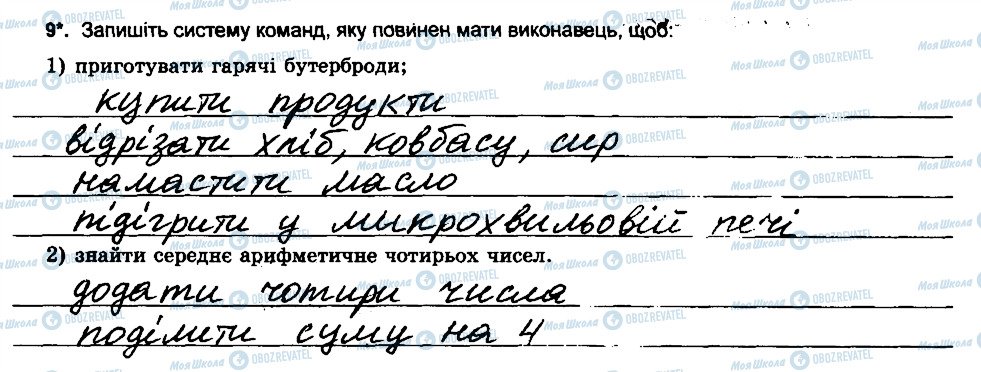 9*. Запишіть систему команд, яку повинен мати виконавець, щоб:
1) приготувати гарячі бутерброди;
купити продукти
відрізати хліб, ковбасу, сир
намастити масло
підігрити у микрохвильовій печі
2) знайти середнє арифметичне чотирьох чисел.
додати чотири числа
поділити суму на 4